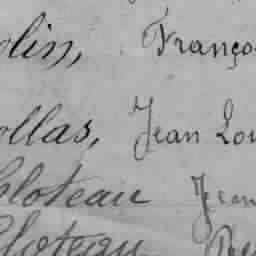 olin, Franço
ollas, Jean Lou
loteau Jean
loteau